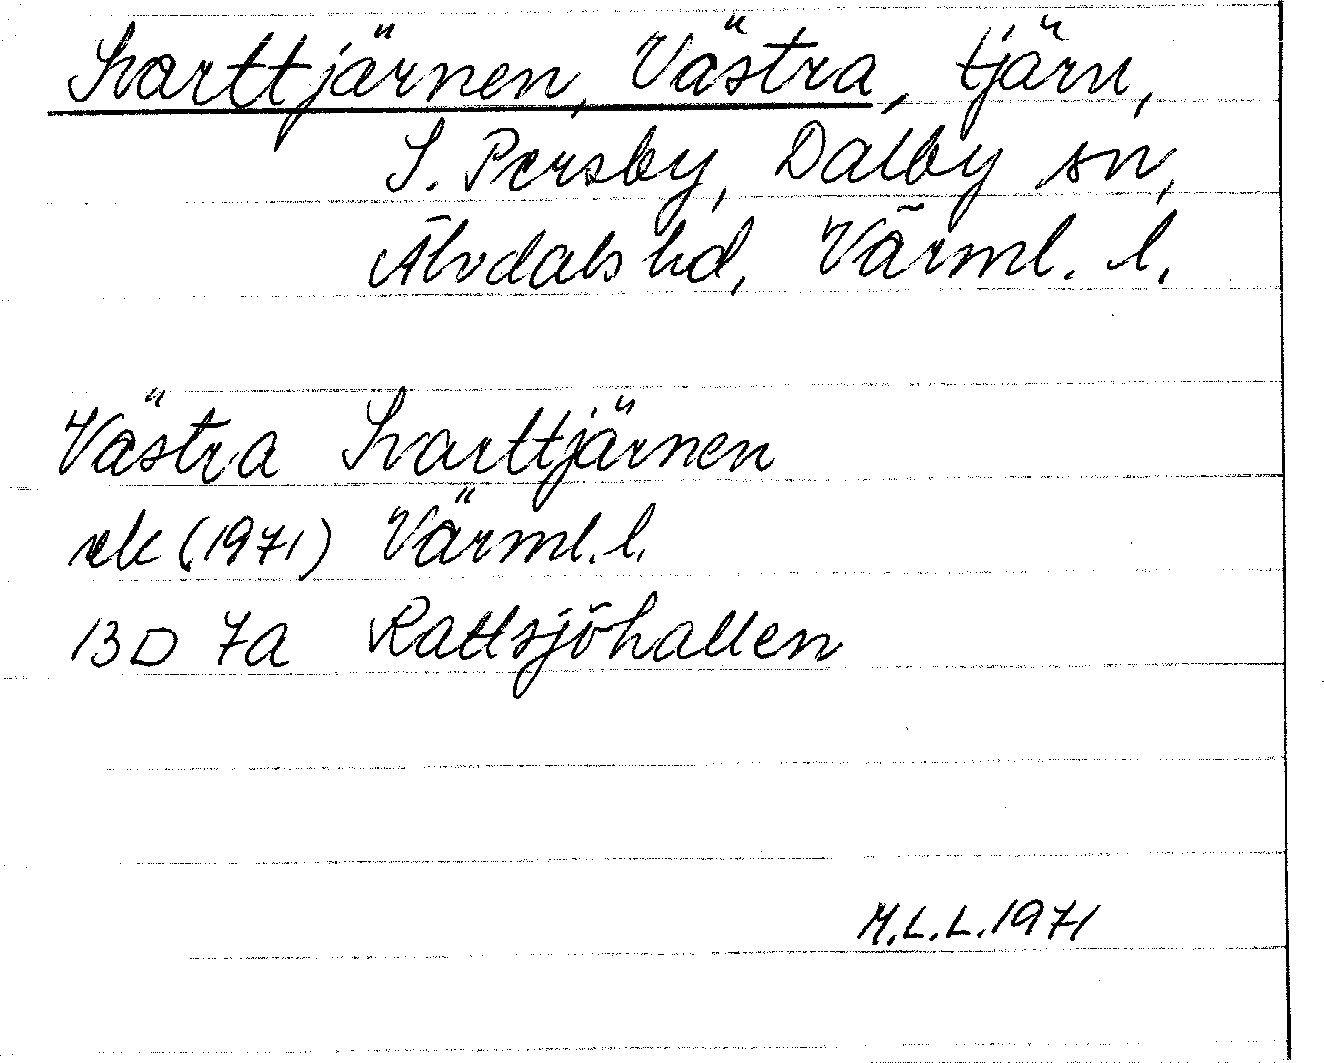 Svarttjärnen, Västra, tjärn,
S. Persby, Dalby sn,
Älvdals hd, Värml. l.
Västra Svarttjärnen
rek (1971) Värml. l.
13D 7a Rattsjöhallen
M.L.L. 1971